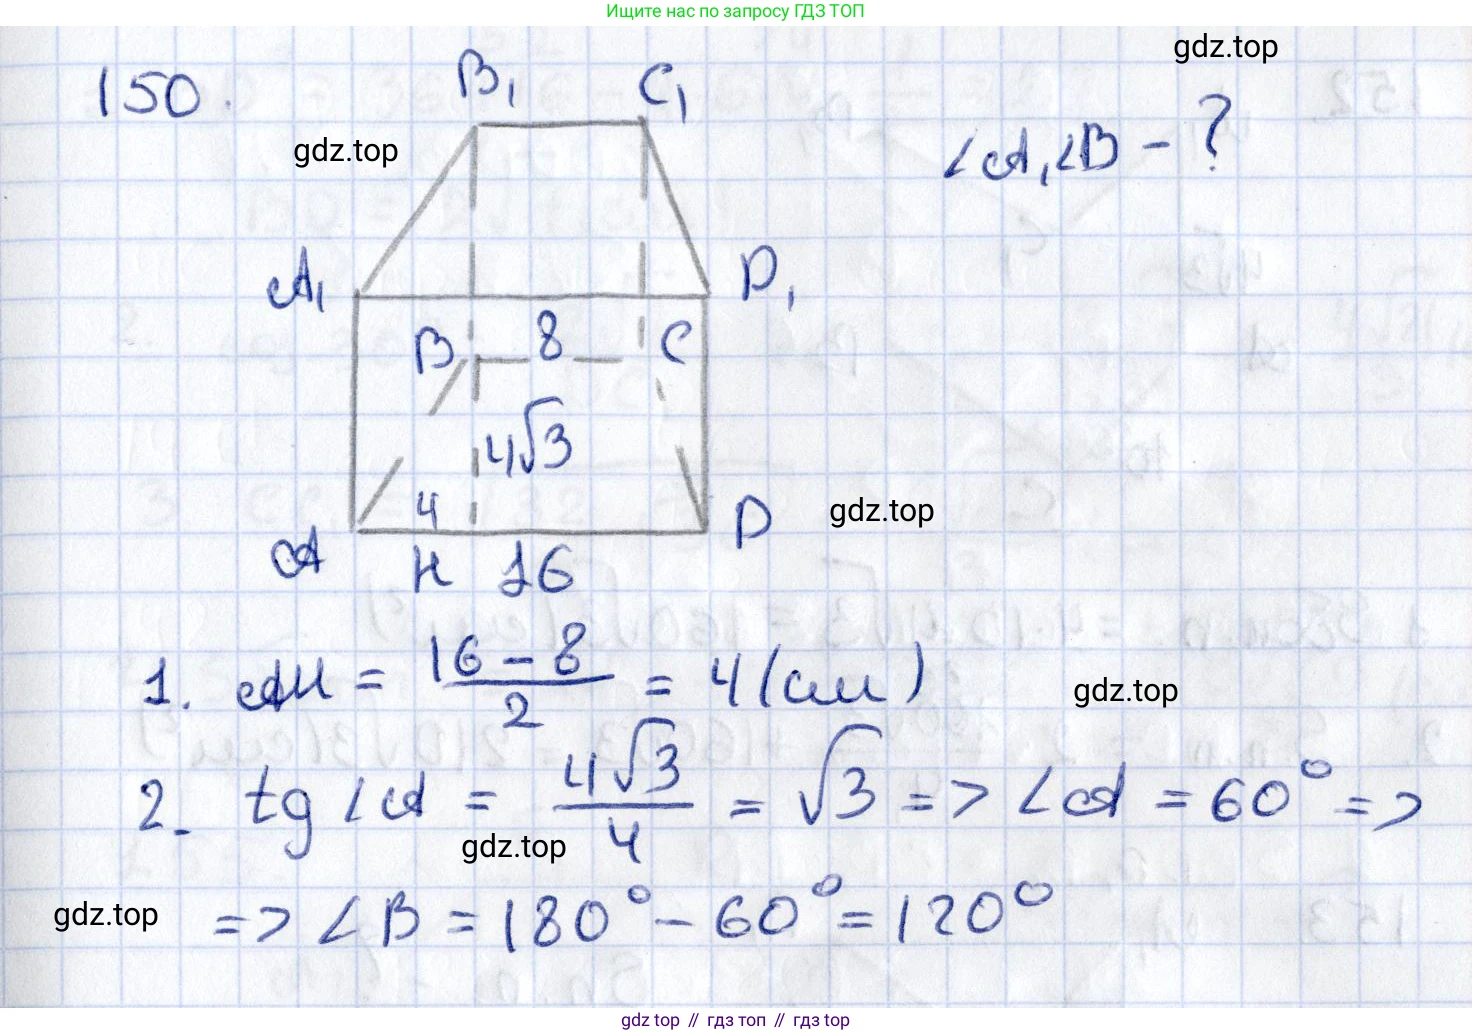 Ищите нас по запросу ГДЗ ТОП
gdz.top
150.
B₁ C₁
gdz.top
∠A, ∠B - ?
A₁ D₁
B 8 C
4√3
4
gdz.top
A H 16 D
1. AH = (16 - 8)/2 = 4 (см)
gdz.top
2. tg ∠A = 4√3/4 = √3 => ∠A = 60° =>
gdz.top
=> ∠B = 180° - 60° = 120°
gdz.top
gdz top // гдз топ // gdz top